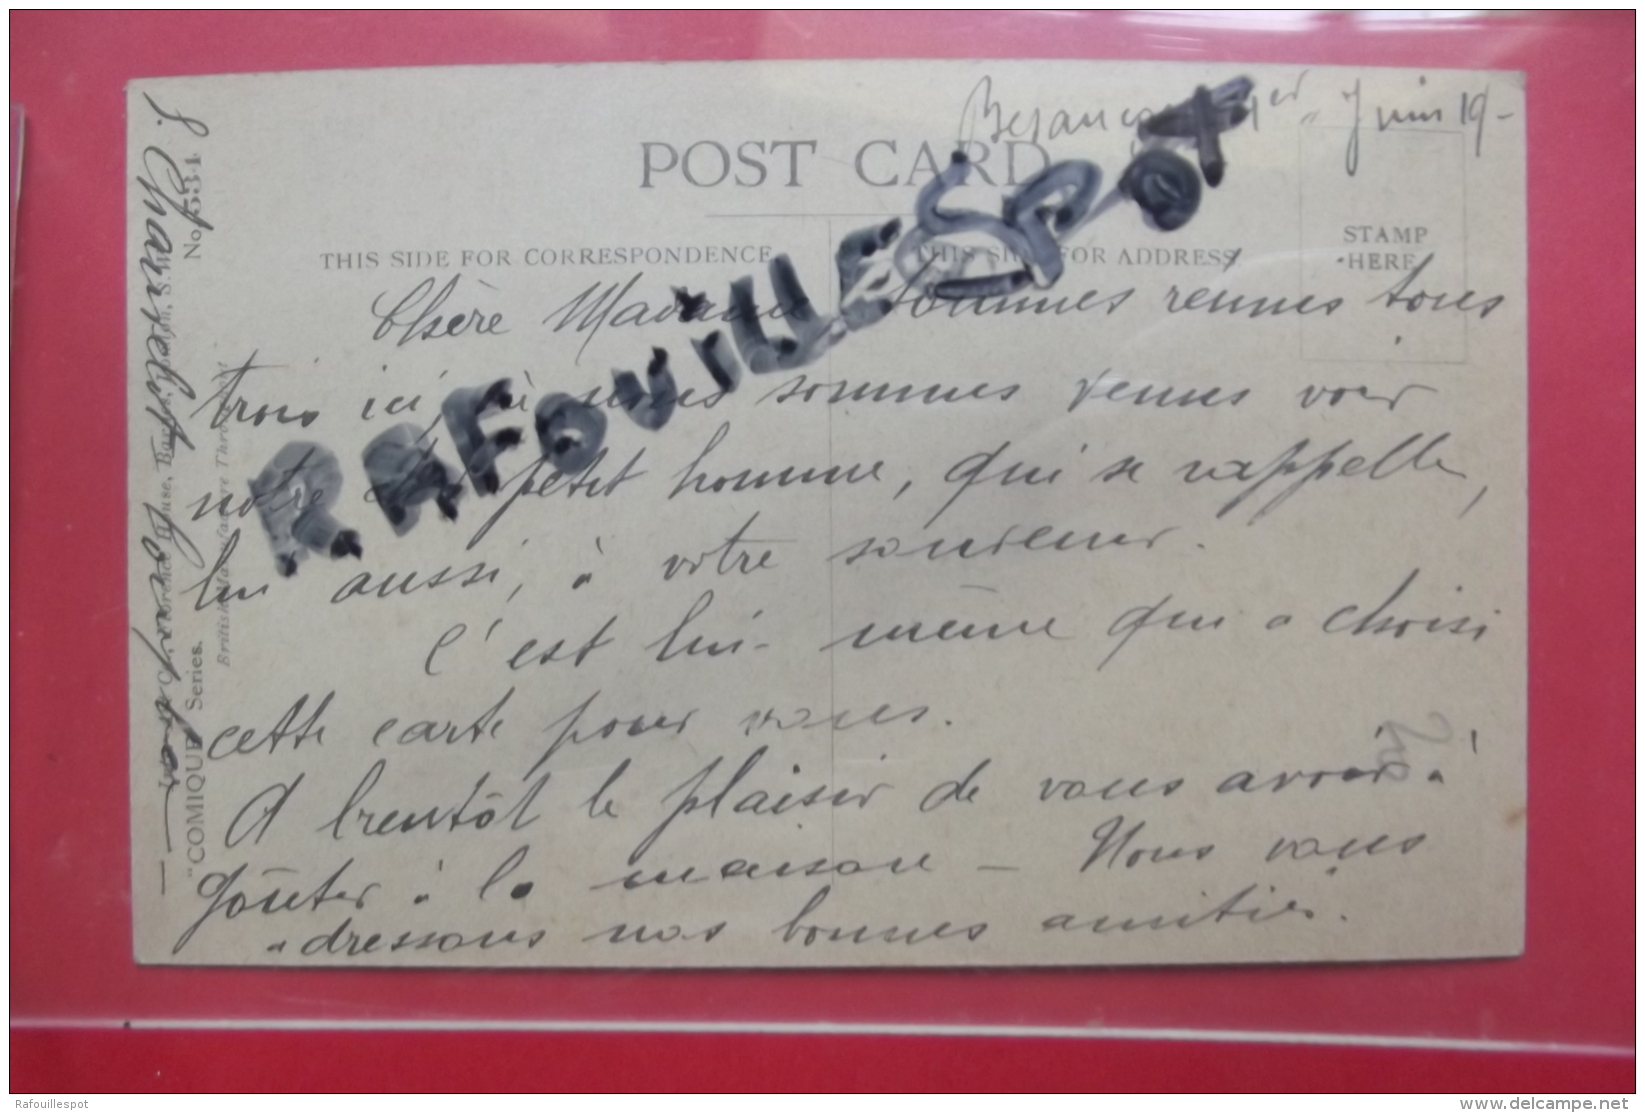 Besançon 1er Juin 19-
POST CARD
THIS SIDE FOR CORRESPONDENCE
THIS SIDE FOR ADDRESS.
STAMP
HERE
RAFOUILLESPOT
Chère Madame, sommes réunis tous
trois ici, où nous sommes venus voir
notre petit homme, qui se rappelle,
lui aussi, à votre souvenir.
C'est lui-même qui a choisi
cette carte pour vous.
A bientôt le plaisir de vous avoir à
goûter à la maison - Nous vous
adressons nos bonnes amitiés.
No. 5341
"COMIQUE" Series.
British Manufacture Throughout
Rafouillespot
www.delcampe.net